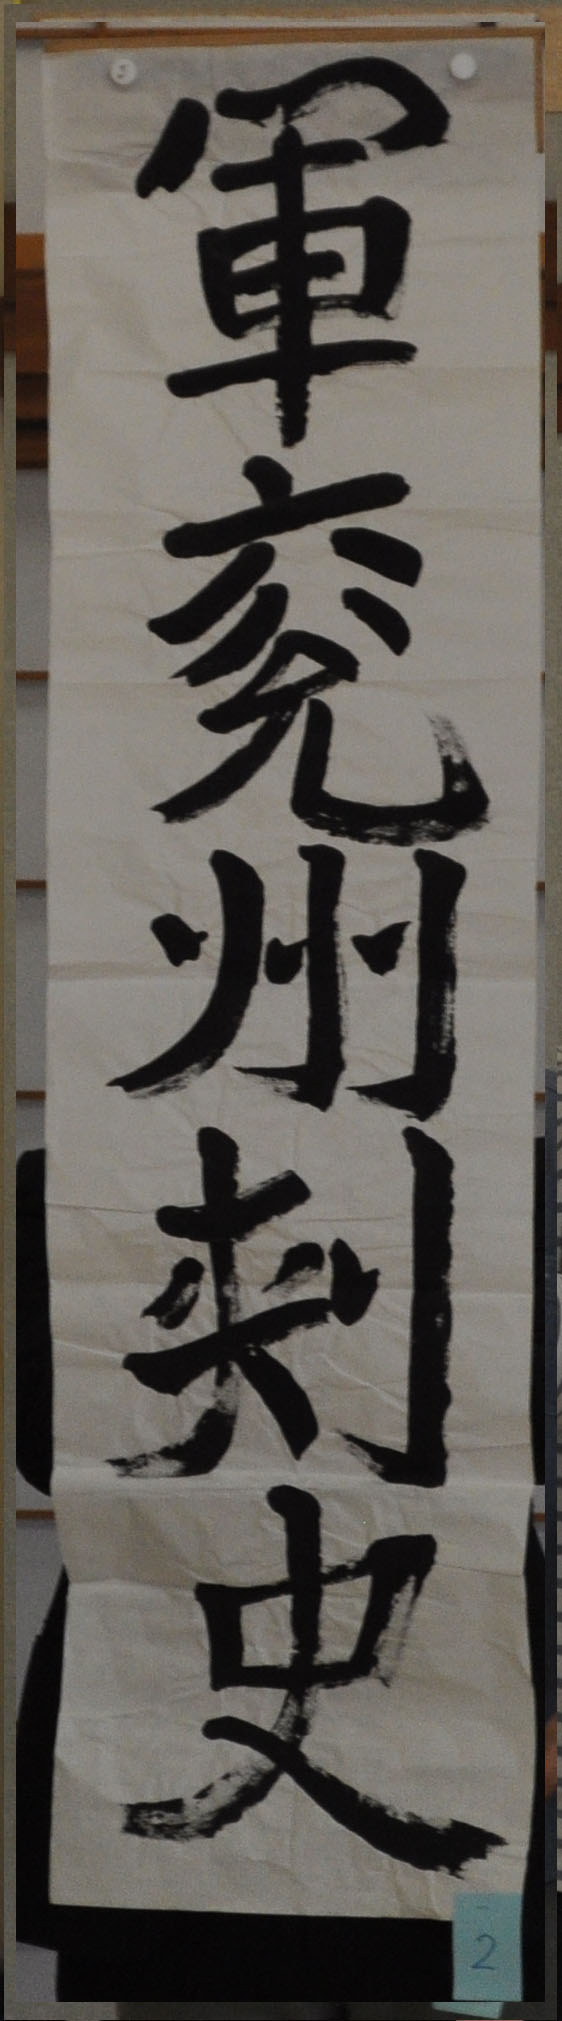 軍兗州刺史
2